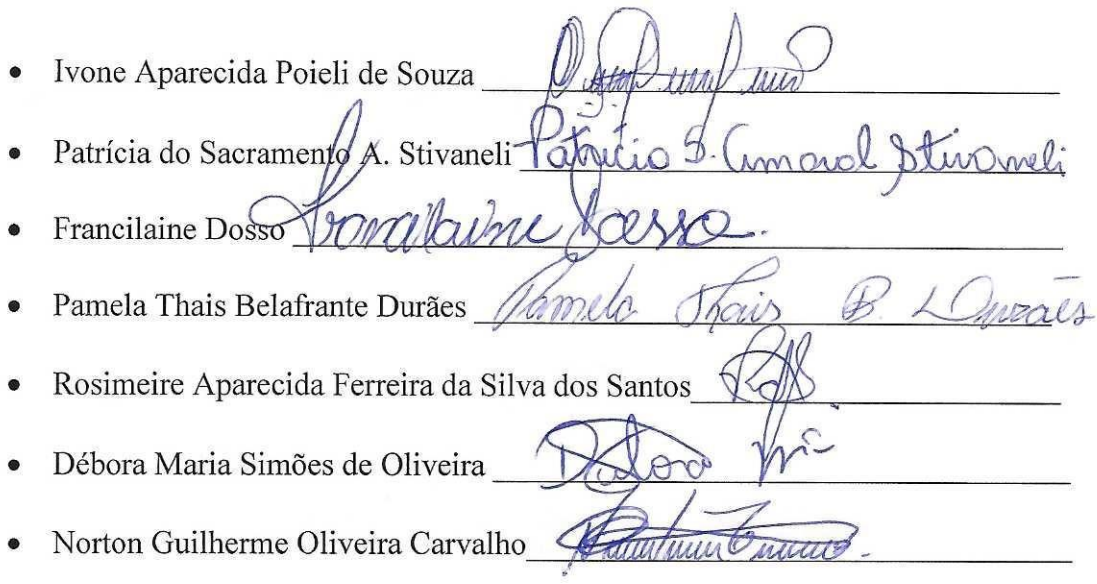 • Ivone Aparecida Poieli de Souza
• Patrícia do Sacramento A. Stivaneli Patrício S. Amaral Stivaneli
• Francilaine Dosso Francilaine Dosso.
• Pamela Thais Belafrante Durães Pamela Thais B. Durães
• Rosimeire Aparecida Ferreira da Silva dos Santos
• Débora Maria Simões de Oliveira Débora
• Norton Guilherme Oliveira Carvalho